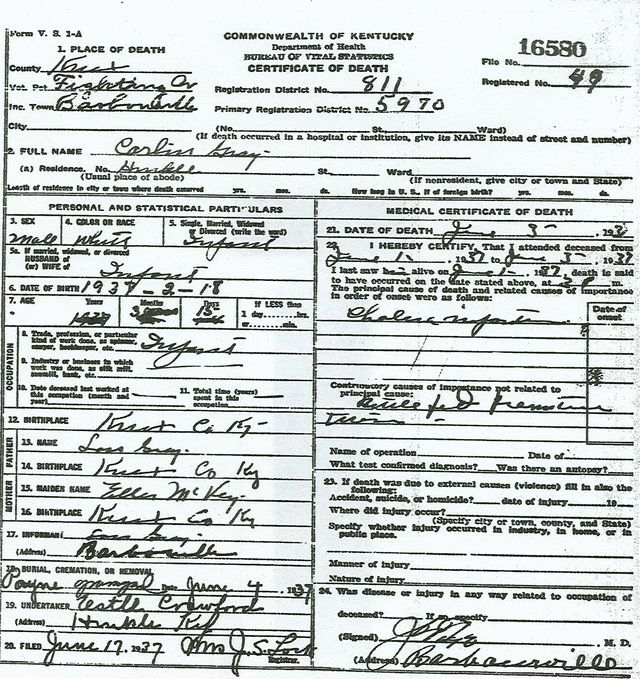 Form V. S. 1-A
COMMONWEALTH OF KENTUCKY
Department of Health
BUREAU OF VITAL STATISTICS
CERTIFICATE OF DEATH
16580
File No.
Registered No. 49
1. PLACE OF DEATH
County Knox
Vot. Pct. Fighting Cr
Inc. Town Barbourville
Registration District No. 811
Primary Registration District No. 5970
City (No. St. Ward)
(If death occurred in a hospital or institution, give its NAME instead of street and number)
2. FULL NAME Carlin Gray
(a) Residence. No. Hinkle St. Ward
(Usual place of abode) (If nonresident, give city or town and State)
Length of residence in city or town where death occurred yrs. mos. ds. How long in U. S. if of foreign birth? yrs. mos. ds.
PERSONAL AND STATISTICAL PARTICULARS
3. SEX Male
4. COLOR OR RACE White
5. Single, Married, Widowed or Divorced (write the word) Infant
5a. If married, widowed, or divorced
HUSBAND of
(or) WIFE of Infant
6. DATE OF BIRTH 1937-2-18
7. AGE Years Months Days If LESS than
1937 3 15 1 day hrs.
or min.
OCCUPATION
8. Trade, profession, or particular
kind of work done, as spinner,
sawyer, bookkeeper, etc. Infant
9. Industry or business in which
work was done, as silk mill,
sawmill, bank, etc.
10. Date deceased last worked at
this occupation (month and
year)
11. Total time (years)
spent in this
occupation
FATHER
12. BIRTHPLACE Knox Co Ky
13. NAME Gray
14. BIRTHPLACE Knox Co Ky
MOTHER
15. MAIDEN NAME
16. BIRTHPLACE Knox Co Ky
17. INFORMANT Gray
(Address) Barbourville
18. BURIAL, CREMATION, OR REMOVAL
Payne Date June 4, 1937
19. UNDERTAKER Crawford
(Address) Hinkle Ky
20. FILED June 17, 1937 Mrs J. S. Lock
Registrar.
MEDICAL CERTIFICATE OF DEATH
21. DATE OF DEATH June 3-, 1937
22. I HEREBY CERTIFY, That I attended deceased from
June 1-, 1937 to June 3-, 1937
I last saw him alive on June 1-, 1937, death is said
to have occurred on the date stated above, at m.
The principal cause of death and related causes of importance
in order of onset were as follows:
Date of
onset
Cholera infantum
Contributory causes of importance not related to
principal cause:
Bottle fed
Name of operation Date of
What test confirmed diagnosis? Was there an autopsy?
23. If death was due to external causes (violence) fill in also the
following:
Accident, suicide, or homicide? date of injury 19
Where did injury occur?
(Specify city or town, county, and State)
Specify whether injury occurred in industry, in home, or in
public place.
Manner of injury
Nature of injury
24. Was disease or injury in any way related to occupation of
deceased? If so, specify
(Signed) M. D.
(Address) Barbourville